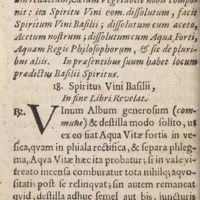 ita Spiritu Vini com. dissolutum, facit
Spiritum Vini Basilii; dissolutum cum aceto,
Acetum nostrum; dissolutum cum Aqua Forti,
Aquam Regis Philosophorum, & sic de pluri-
bus aliis. In præsentibus suum habet locum
prædictus Basilii Spiritus.
18. Spiritus Vini Basilii,
In fine Libri Revelat.
VInum Album generosum (com-
mune) & destilla modo solito, ut
ex eo fiat Aqua Vitæ fortis in ve-
sica, quam in phiala rectifica, & separa phleg-
ma, Aqua Vitæ hæc ita probatur; si in vase vi-
treato incensa comburatur tota, nihil aquosita-
tis post se relinquat; sin autem remaneat